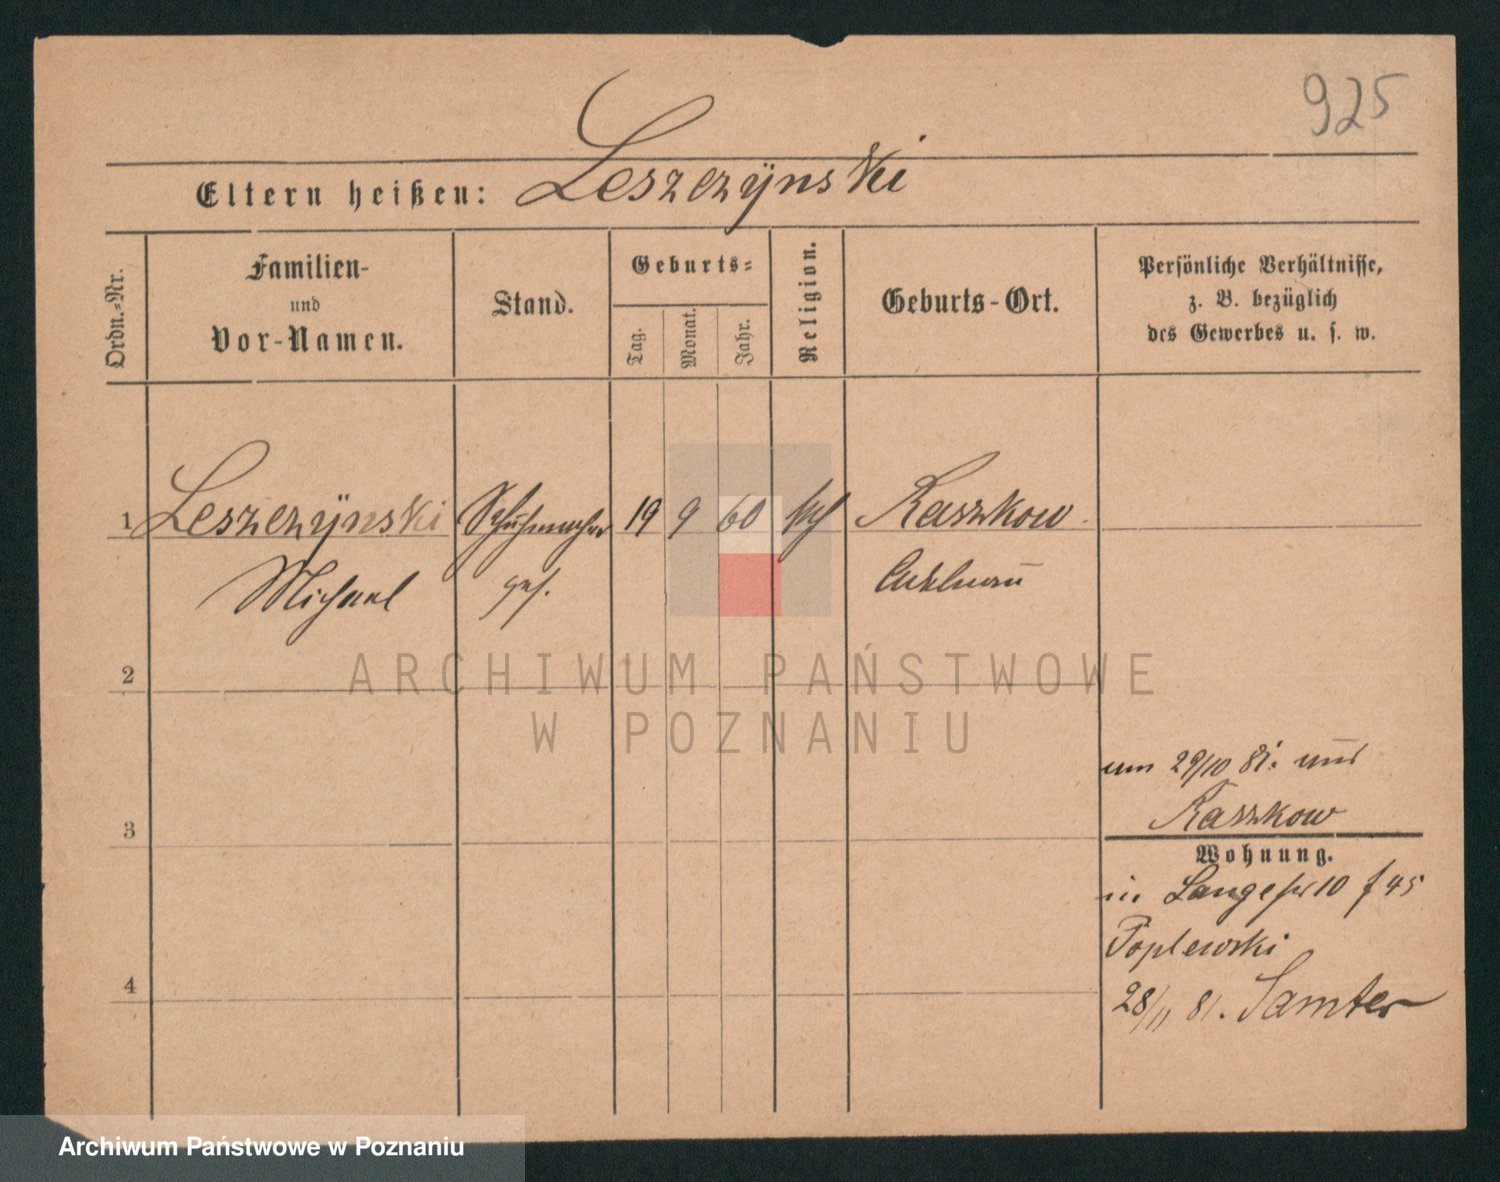 925
Leszczÿnski
Eltern heißen:
Ordn.-Nr.
Familien-
und
Vor-Namen.
Stand.
Geburts-
Tag.
Monat.
Jahr.
Religion.
Geburts-Ort.
Persönliche Verhältnisse,
z. B. bezüglich
des Gewerbes u. s. w.
1 Leszczÿnski Schuhmacher 19 9 60 kth Raszkow
Michael ges. Adelnau
2
ARCHIWUM PAŃSTWOWE
W POZNANIU
29/10 81.
Raszkow
3
Wohnung.
Langestr 10 f 45
Poplewski
4
28/11 81. Samter
Archiwum Państwowe w Poznaniu